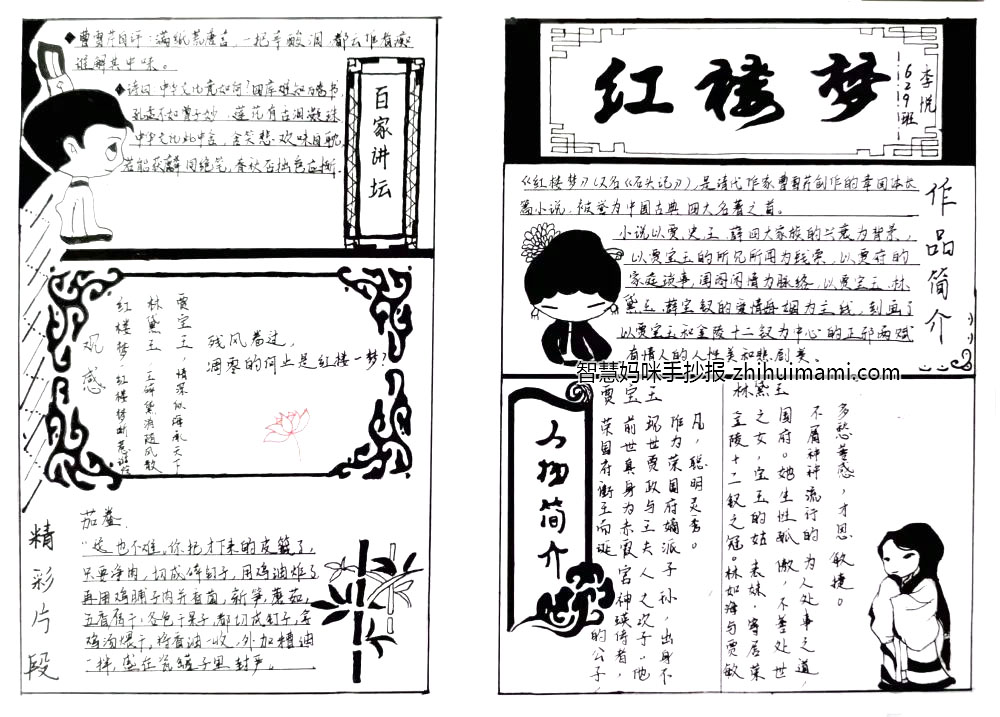 曹雪芹自评：满纸荒唐言，一把辛酸泪，都云作者痴
谁解其中味。
百家讲坛
观感
贾宝玉，情深似海承天下
林黛玉，一玉碎黛消随风散
红楼梦，红楼梦断
残风卷过，
凋零的何止是红楼一梦？
精彩片段
茄鲞
"这也不难。你把才下来的皮籖了，
只要净肉，切成碎钉子，用鸡油炸了
再用鸡脯子肉并香菌，新笋，蘑菇，
五香腐干，各色干果子，都切成钉子，拿
鸡汤煨干，将香油一收，外加糟油
一拌，盛在瓷罐子里封严。
红楼梦
629班
李悦
作品简介
《红楼梦》（又名《石头记》），是清代作家曹雪芹创作的章回体长
篇小说，被誉为中国古典四大名著之首。
小说以贾史王薛四大家族的兴衰为背景，
以贾宝玉的所见所闻为线索，以贾府的
家庭琐事，闺阁闲情为脉络，以贾宝玉、林
黛玉、薛宝钗的爱情婚姻为主线，刻画了
以贾宝玉和金陵十二钗为中心的正邪两赋
有情人的人性美和悲剧美。
智慧妈咪手抄报 zhihuimami.com
人物简介
林黛玉
多愁善感，才思敏捷。
不屑神神流行的为人处事之道，
国府。她生性孤傲，不善处世
之女，宝玉的姑表妹，寄居荣
金陵十二钗之冠。林如海与贾敏
贾宝玉
凡，聪明灵秀。
作为荣国府嫡派子孙，出身不
玛世贾政与王夫人之次子，他
前世真身为赤霞宫神瑛侍者，
荣国府衔玉而诞的公子，